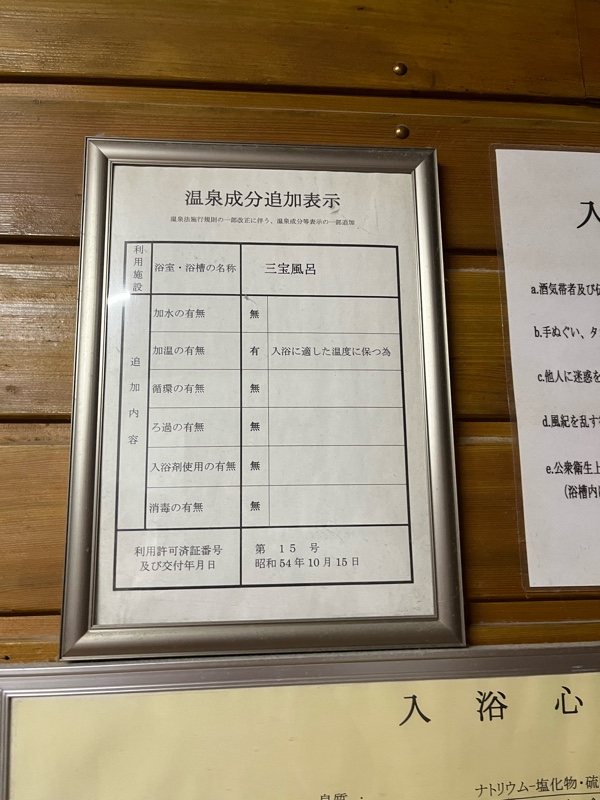 温泉成分追加表示
温泉法施行規則の一部改正に伴う、温泉成分等表示の一部追加
利用施設
浴室・浴槽の名称 三宝風呂
追加内容
加水の有無 無
加温の有無 有 入浴に適した温度に保つ為
循環の有無 無
ろ過の有無 無
入浴剤使用の有無 無
消毒の有無 無
利用許可済証番号
及び交付年月日
第 15 号
昭和54年10月15日
入
a.酒気帯者及び伝
b.手ぬぐい、タ
c.他人に迷惑を
d.風紀を乱す
e.公衆衛生上
(浴槽内
入浴心
ナトリウム-塩化物・硫
泉質: